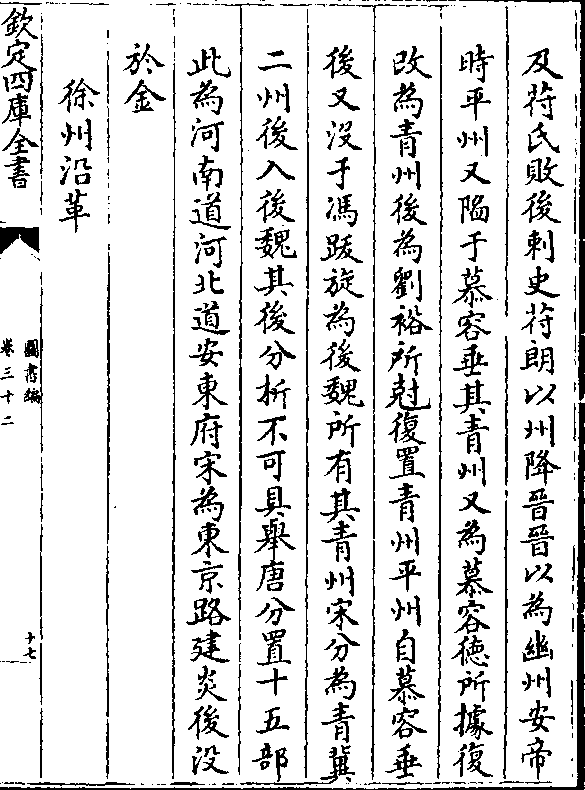 及苻氏敗後剌史苻朗以州降晉晉以為幽州安帝
時平州又陥于慕容垂其青州又為慕容徳所據復
改為青州後為劉裕所尅復置青州平州自慕容垂
後又沒于馮跋旋為後魏所有其青州宋分為青冀
二州後入後魏其後分析不可具舉唐分置十五部
此為河南道河北道安東府宋為東京路建炎後沒
於金
徐州沿革
欽定四庫全書
圖書編
卷三十二
十七